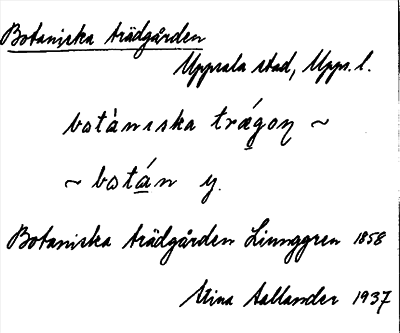 Botaniska trädgården
Uppsala stad, Upps. l.
botàniska trǽgoɳ ~
~ botán y.
Botaniska trädgården Linnggren 1858
Mina Aallander 1937